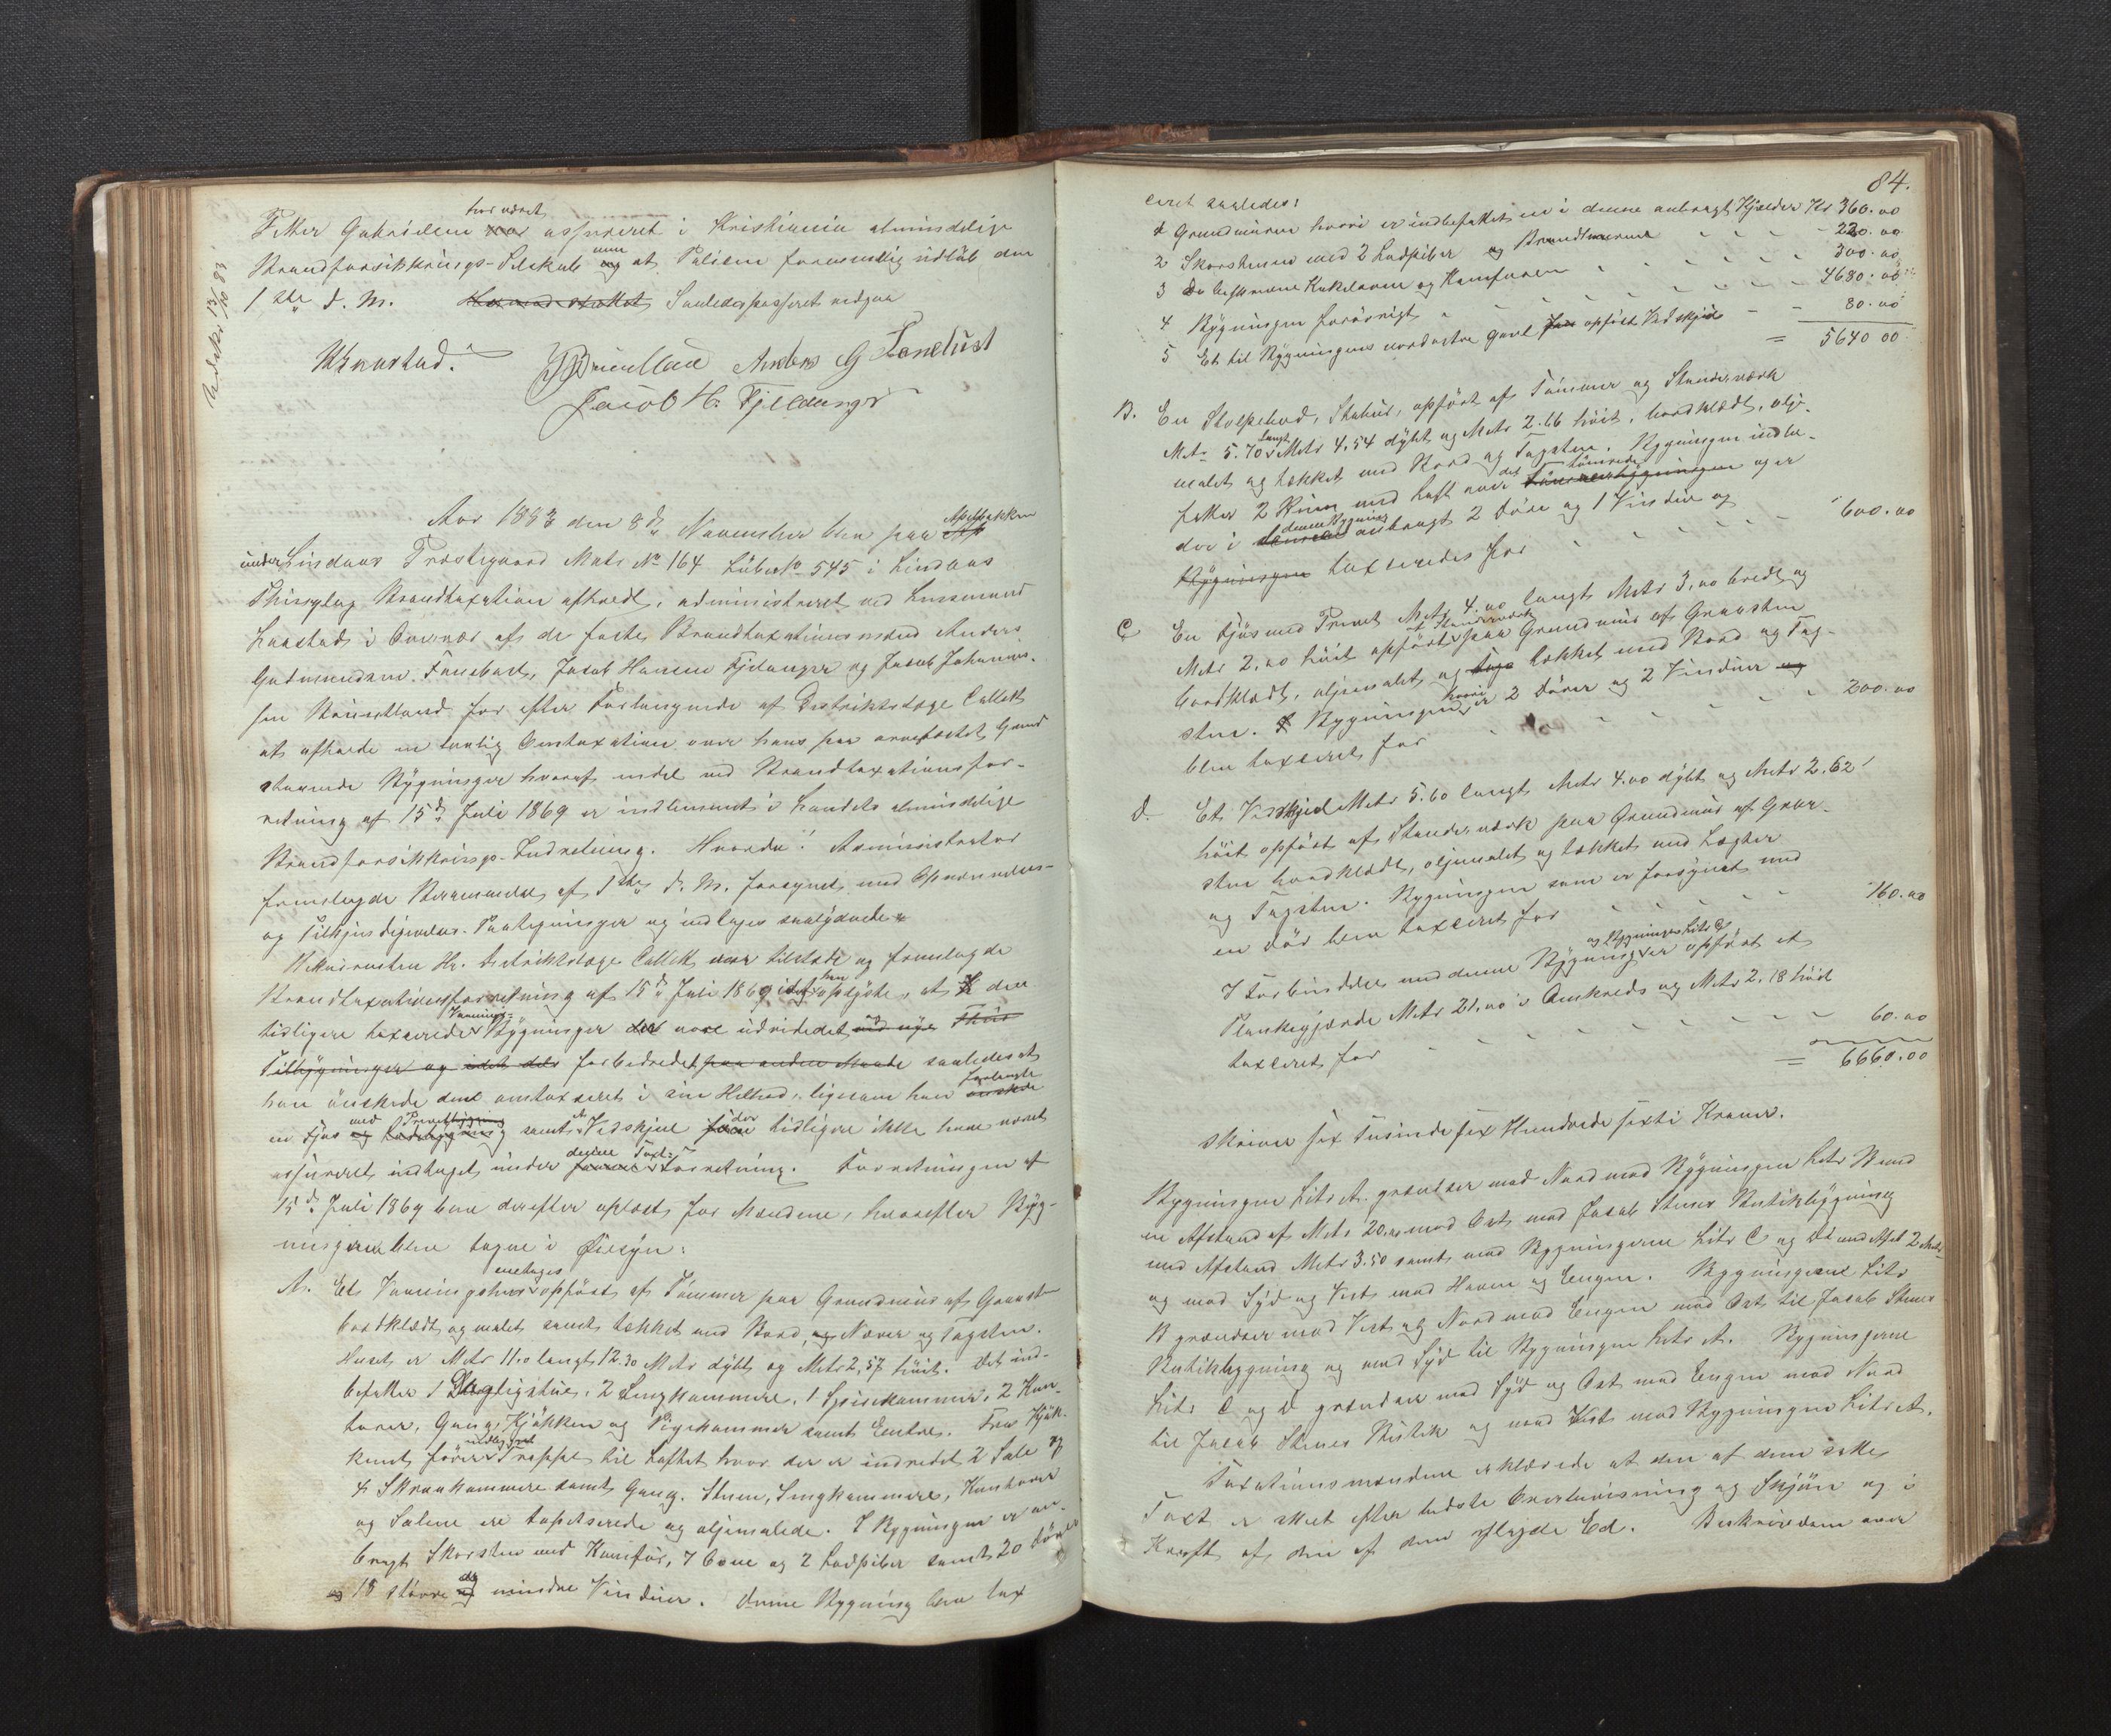 har været
Peter Gabrielsen var assureret i Kristiania almindelige
Brandforsikkrings-Selskab og at Polisen formentlig udløb den
1ste d. M. Saaledes passeret vedgaar
Knarstad. Anders G Fanebust
Jacob H. Fjeldanger
Udskr 13/10 83
Aar 1883 den 8de November blev paa
under Lindaas Præstegaard Matr No 164 Løbe No 545 i Lindaas
Thinglag Brandtaxation afholdt, administreret ved Lensmand
Laastad i Overvær af de faste Brandtaxationsmænd Anders
Gudmundsen Fanebust, Jacob Hansen Fjeldanger og Jacob Johannes-
sen for efter Forlangende af Distriktslæge Collett
at afholde en lovlig Omtaxation over hans paa Grund
staaende Bygninger hvoraf endel ved Brandtaxationsfor-
retning af 15de Juli 1869 er indlemmet i Landets almindelige
Brandforsikkrings-Indretning. Hvorda! Administrator
fremlagde af 1ste d. M. forsynet med Opnævnelses-
og Tilkjendegivelses-Paategninger og indtages saalydende
Rekvirenten Hr. Distriktslæge Collett var tilstede og fremlagde
Brandtaxationsforretning af 15de Juli 1869 idet han oplyste, at de
tidligere taxerede Vaanings- Bygninger vare udvidede
Tilbygninger og forbedrede paa anden Maade saaledes at
han ønskede dem omtaxeret i sin Helhed, ligesom han forlangte
en Fjøs med samt et Vedskjul der tidligere ikke have været
assureret indtaget under denne Taxt-Forretning. Forretningen af
15de Juli 1869 blev derefter oplæst for Mændene, hvorefter Byg-
ningerne blev tagne i Øiesyn:
A. Et Vaaningshus opført af Tømmer paa Grundmur af Graasten
bordklædt og malet samt tækket med Bord, Næver og Tagsten.
Huset er Metr 11.10 langt 12.30 Metr dybt og Metr 2,57 høit. Det ind-
befatter 1 Dagligstue, 2 Sengkammere, 1 Spisekammer, 2 Kon-
torer, Gang, Kjøkken og Pigekammer samt Entre. Fra Kjøk-
kenet fører Trappe til Loftet hvor der er indredet 2 Sale og
4 Skraakammere samt Gang. Stuen, Sengkammere, Kontorer
og Salene ere tapetserede og oljemalede. I Bygningen er an-
bragt Skorsten med Komfur, 7 Ovne og 2 Ladpiber samt 20 Døre
og 18 større og mindre Vinduer. Denne Bygning blev tax
84.
ceret saaledes:
1 Grundmuren hvori er indbefattet en i denne anbragt Kjelder Kr 360.00
2 Skorstenen med 2 Ladpiber og Brandmurene 220.00
3 De Kakelovne og Komfuren 300.00
4 Bygningen forøvrigt 4680.00
5 Et til Bygningens nordøstre Gavl opført Vedskjul 80.00
= 5640 00
B. En Stolpebod, Stabur, opført af Tømmer og Stenderværk
Metr 5.70 langt Metr 4,54 dybt og Metr 2.66 høit, bordklædt, olje-
malet og tækket med Bord og Tagsten. Bygningen indbe-
fatter 2 Rum med Loft over og er
der i denne Bygning anbragt 2 Døre og 1 Vindue og
Bygningen taxeredes for 600.00
C En Fjøs med Privet Metr 4.00 langt Metr 3,00 bredt og
Metr 2,00 høit opført af Stenderværk paa Grundmur af Graasten
bordklædt, oljemalet og tækket med Bord og Tag-
sten. I Bygningen hvori er 2 Dører og 2 Vinduer og
blev taxeret for 200.00
D. Et Vedskjul Metr 5.60 langt Metr 4.00 dybt og Metr 2.62
høit opført af Stenderværk paa Grundmur af Graa-
sten bordklædt, oljemalet og tækket med Lægter
og Tagsten. Bygningen som er forsynet med
en Dør blev taxceret for 160.00
I Forbindelse med denne Bygning og Bygningen Litr C er opført et
Plankegjærde Metr 21.00 i Omkreds og Metr 2.18 høit
taxceret for 60.00
= 6660.00
skriver sex Tusinde sex Hundrede sexti Kroner.
Bygningen Litr A. grændser mod Nord mod Bygningen Litr B med
en Afstand af Metr 20.00 mod Ost mod Jacob Butikbygning
med Afstand Metr 3.50 samt mod Bygningerne Litr C og D med Afst 2 Metr
og mod Syd og Vest mod Haven og Engen. Bygningerne Litr
B grændser mod Vest og Nord mod Engen mod Ost til Jacob
Butikbygning og mod Syd til Bygningen Litr A. Bygningerne
Litr C og D grændser mod Syd og Ost mod Engen mod Nord
til Jacob Butik og mod Vest mod Bygningen Litr A.
Taxationsmændene erklærede at den af dem satte
Taxt er skeet efter bedste Overbevisning og Skjøn og i
Kraft af den af dem aflagde Ed. Beskrivelsen over